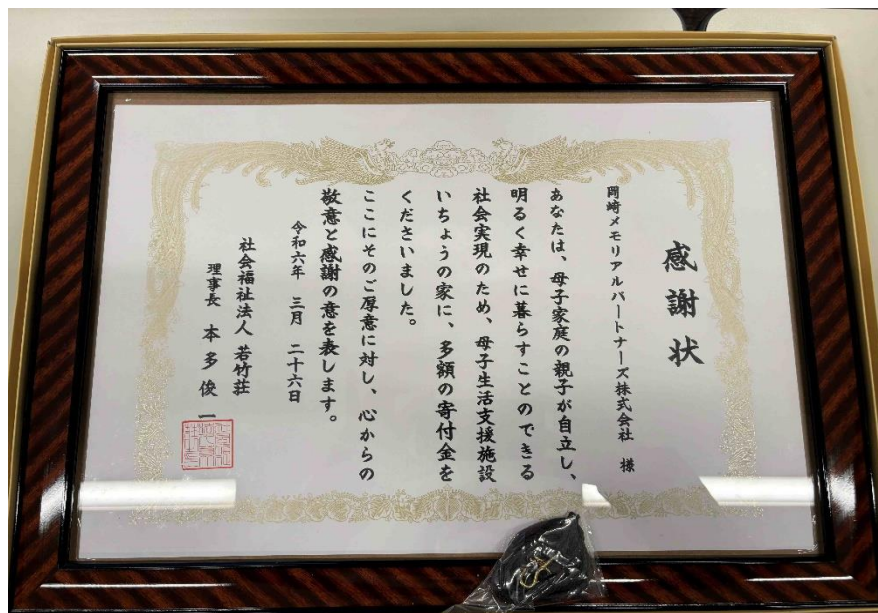 感謝状
岡崎メモリアルパートナーズ株式会社 様
あなたは、母子家庭の親子が自立し、
明るく幸せに暮らすことのできる
社会実現のため、母子生活支援施設
いちょうの家に、多額の寄付金を
くださいました。
ここにそのご厚意に対し、心からの
敬意と感謝の意を表します。
令和六年 三月 二十六日
社会福祉法人 若竹荘
理事長 本多俊一